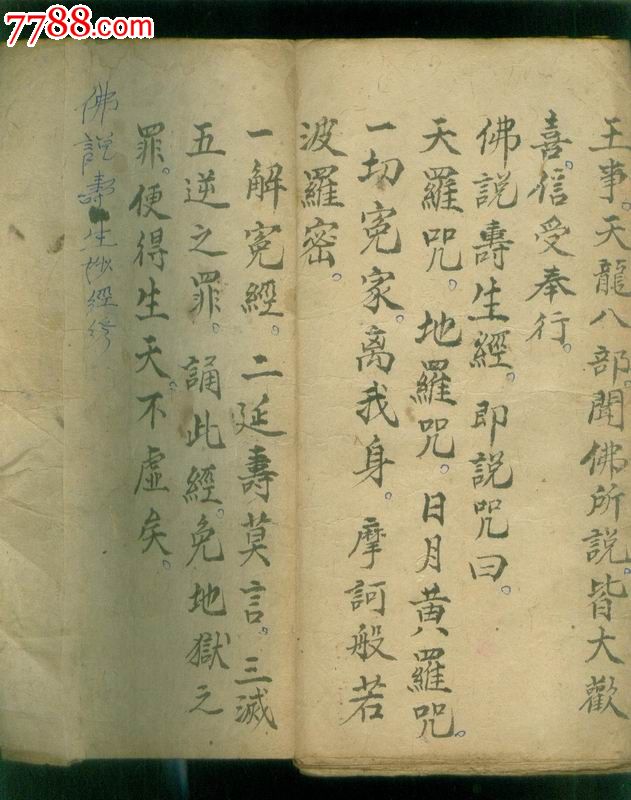 7788.com
王事。天龍八部。聞佛所說。皆大歡
喜。信受奉行。
佛說壽生經。即說咒曰。
天羅咒。地羅咒。日月黃羅咒。
一切寃家。离我身。摩訶般若
波羅密。
一解寃經。二延壽莫言。三滅
五逆之罪。誦此經。免地獄之
罪。便得生天。不虛矣。
佛說壽生妙經